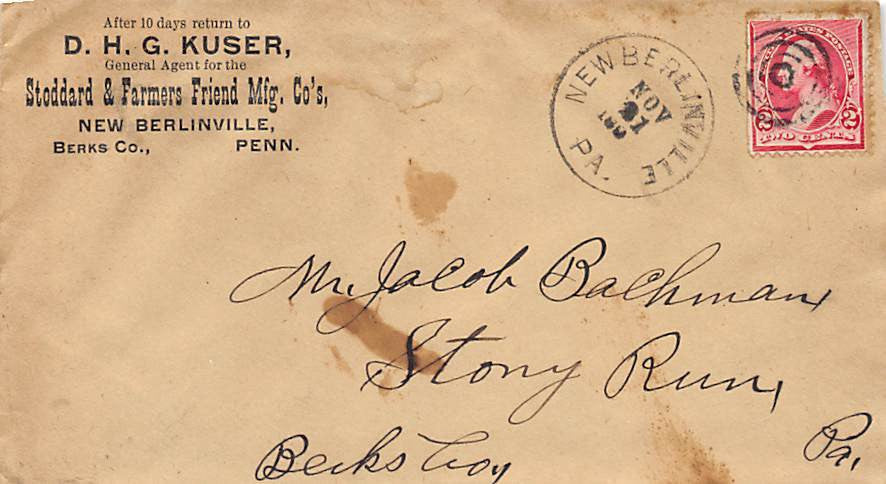 After 10 days return to
D. H. G. KUSER,
General Agent for the
Stoddard & Farmers Friend Mfg. Co's,
NEW BERLINVILLE,
BERKS CO., PENN.
NEW BERLINVILLE
NOV
21
PA.
UNITED STATES POSTAGE
2 2
TWO CENTS
Mr. Jacob Bachman,
Stony Run,
Berks Coy Pa.